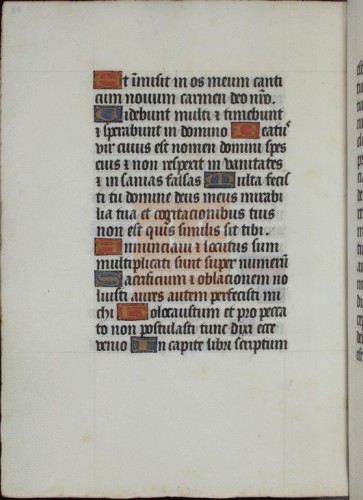 Et i͞misit in os meum canti
cum nouum carmen deo n͞ro.
Uidebunt multi ⁊ timebunt
⁊ sperabunt in domino Beatus
uir cuius est nomen domini spes
eius ⁊ non respexit in uanitates
⁊ insanias falsas Multa fecis
ti tu domine deus meus mirabi
lia tua et cogitacionibus tuis
non est quis similis sit tibi.
Annunciaui ⁊ locutus sum
multiplicati sunt super numerū
Sacrificium ⁊ oblacionem no
luisti aures autem perfecisti mi
chi Holocaustum et pro pecca
to non postulasti tunc dixi ecce
uenio In capite libri scriptum